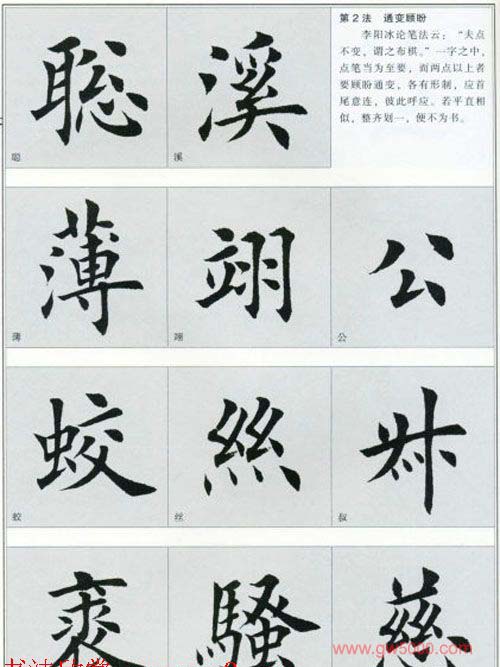 第2法 通变顾盼
李阳冰论笔法云：“夫点
不变，谓之布棋。”一字之中，
点笔当为至要，而两点以上者
要顾盼通变，各有形制，应首
尾意连，彼此呼应。若平直相
似，整齐划一，便不为书。
聪 溪
聪 溪
薄 翊 公
薄 翊 公
蛟 絲
蛟 丝 叔
騷 兹
www.gw5000.com